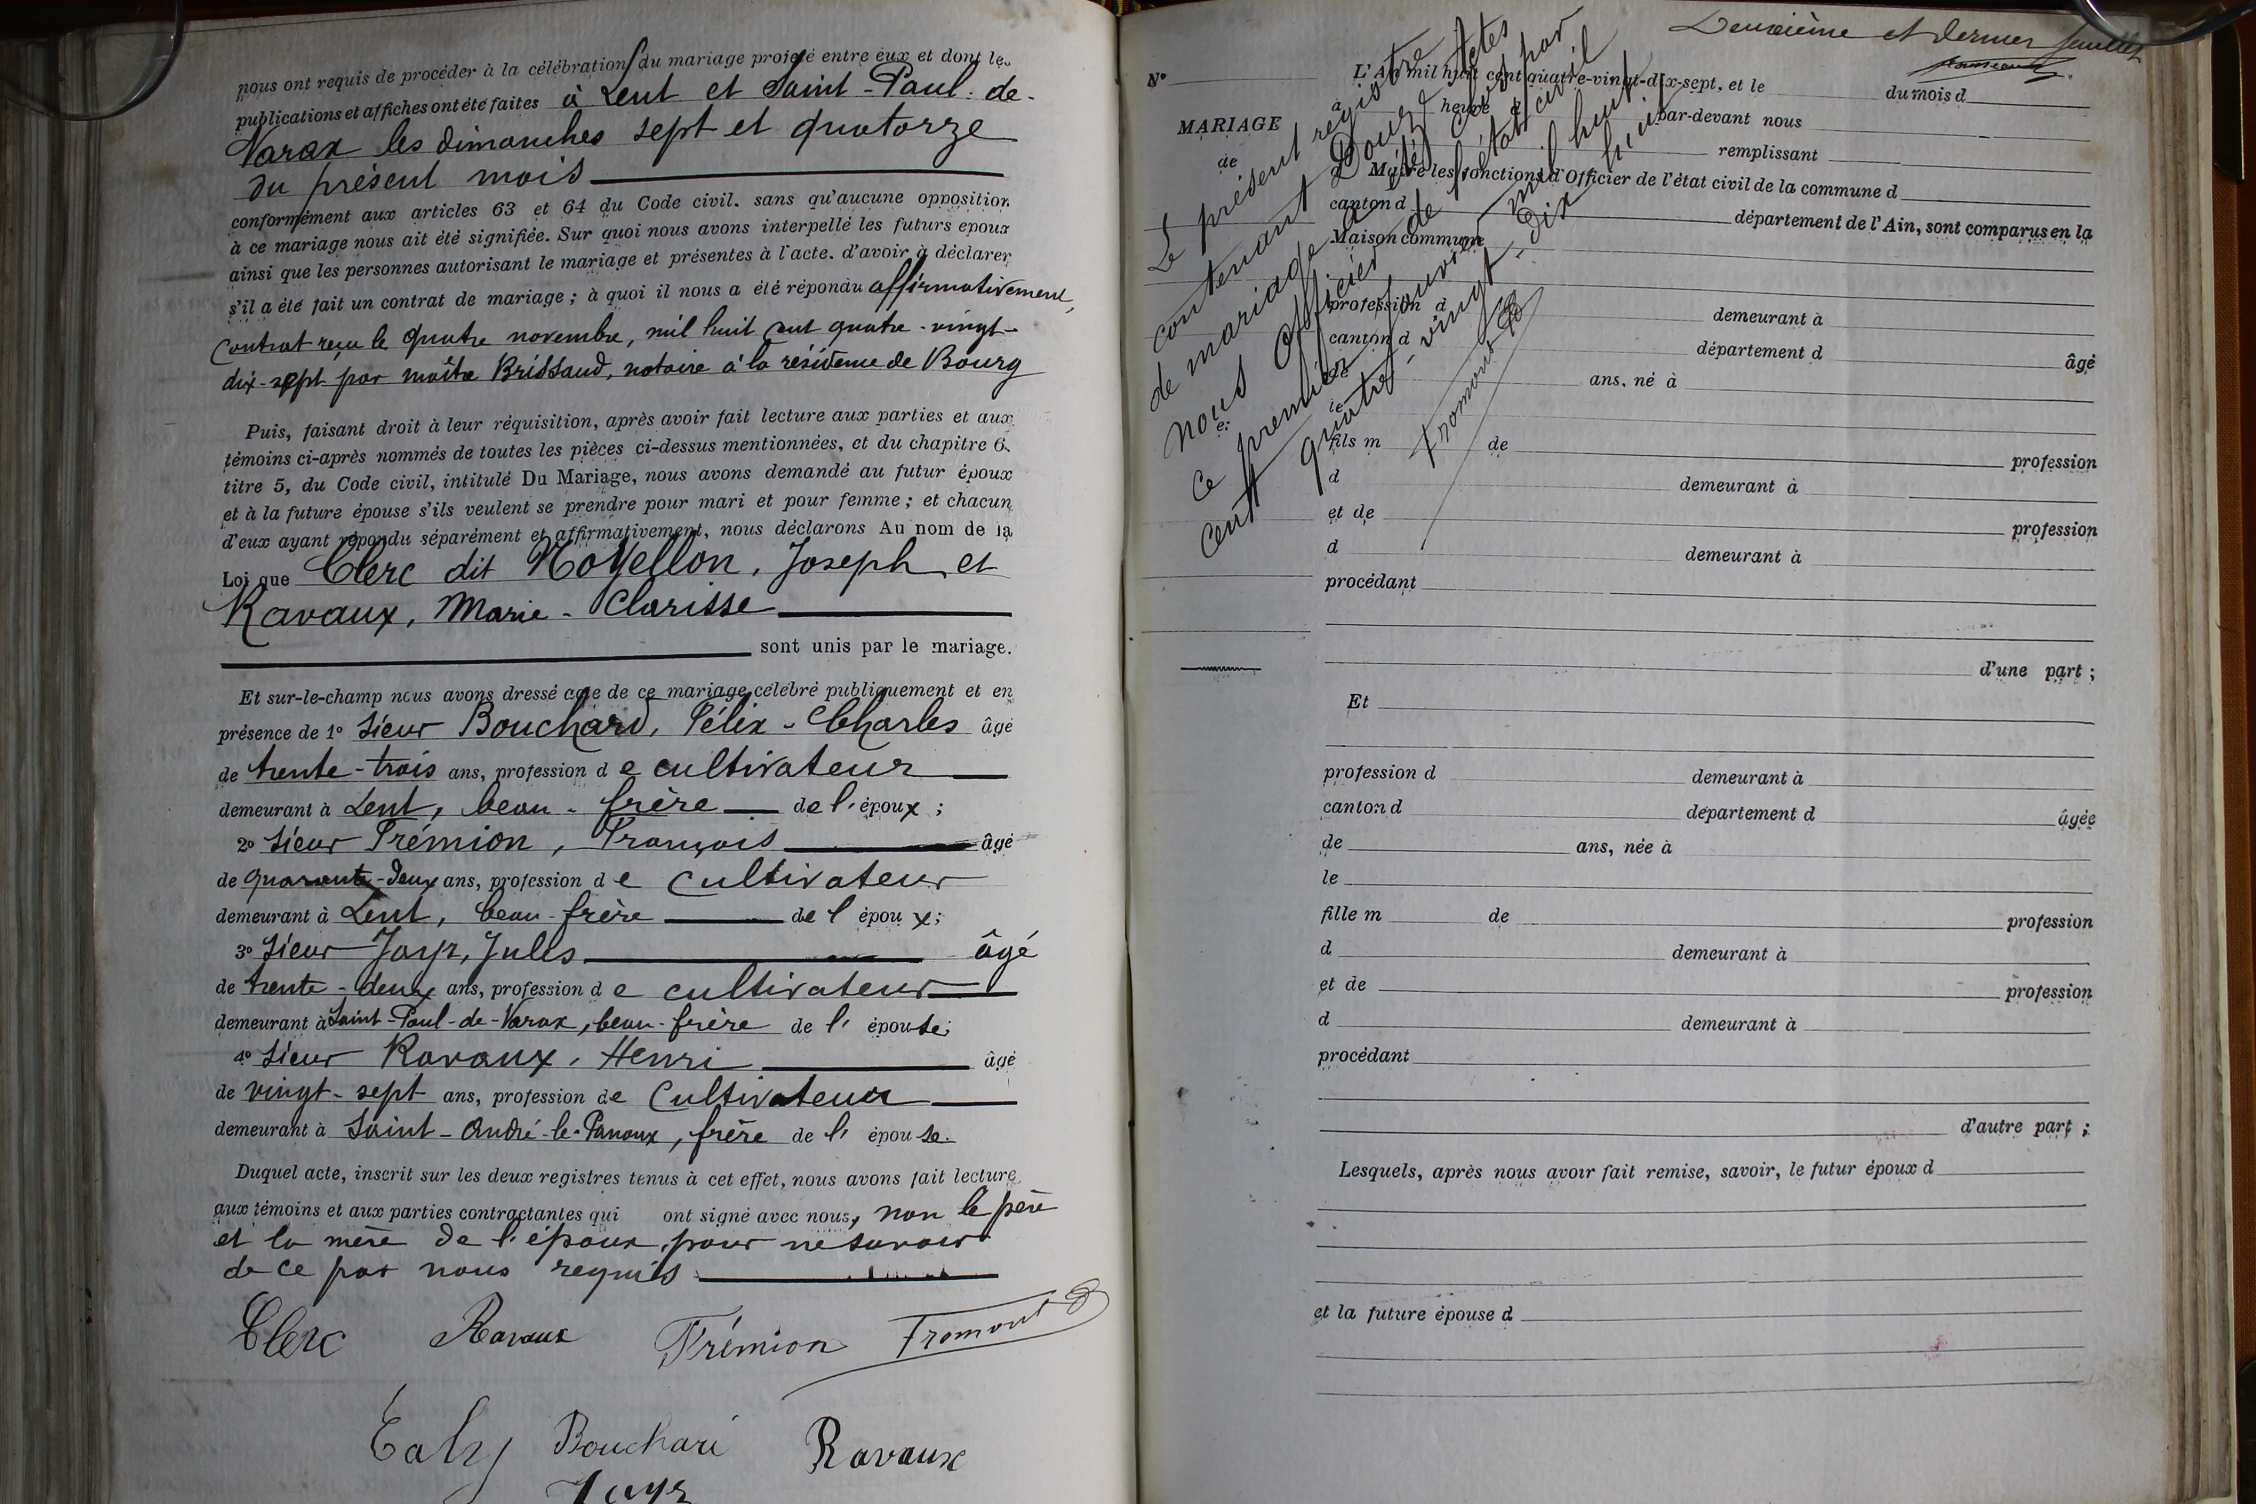 nous ont requis de procéder à la célébration du mariage projeté entre eux et dont les
publications et affiches ont été faites à Lent et Saint-Paul-de-
Varax les dimanches sept et quatorze
du présent mois
conformément aux articles 63 et 64 du Code civil. sans qu'aucune opposition
à ce mariage nous ait été signifiée. Sur quoi nous avons interpellé les futurs époux
ainsi que les personnes autorisant le mariage et présentes à l'acte. d'avoir à déclarer
s'il a été fait un contrat de mariage ; à quoi il nous a été répondu affirmativement,
contrat reçu le quatre novembre, mil huit cent quatre-vingt-
dix-sept par maître Brissaud, notaire à la résidence de Bourg
Puis, faisant droit à leur réquisition, après avoir fait lecture aux parties et aux
témoins ci-après nommés de toutes les pièces ci-dessus mentionnées, et du chapitre 6.
titre 5, du Code civil, intitulé Du Mariage, nous avons demandé au futur époux
et à la future épouse s'ils veulent se prendre pour mari et pour femme ; et chacun
d'eux ayant répondu séparément et affirmativement, nous déclarons Au nom de la
Loi que Clerc dit Noyellon, Joseph et
Ravaux, Marie-Clarisse
sont unis par le mariage.
Et sur-le-champ nous avons dressé acte de ce mariage célébré publiquement et en
présence de 1° sieur Bouchard, Félix-Charles âgé
de trente-trois ans, profession de cultivateur
demeurant à Lent, beau-frère de l'époux ;
2° sieur Frémion, François âgé
de quarante-deux ans, profession de cultivateur
demeurant à Lent, beau-frère de l'époux ;
3° sieur Jayr, Jules âgé
de trente-deux ans, profession de cultivateur
demeurant à Saint-Paul-de-Varax, beau-frère de l'épouse ;
4° sieur Ravaux, Henri âgé
de vingt-sept ans, profession de cultivateur
demeurant à Saint-André-le-Panoux, frère de l'épouse.
Duquel acte, inscrit sur les deux registres tenus à cet effet, nous avons fait lecture
aux témoins et aux parties contractantes qui ont signé avec nous, non le père
et la mère de l'époux, pour ne savoir
de ce par nous requis
Clerc Ravaux Frémion Fromont
Bouchard Ravaux
Jayr
Deuxième et dernier feuillet
N°
MARIAGE
de
et
Le présent registre
contenant Douze Actes
de mariage a été clos par
nous Officier de l'état civil
ce premier janvier mil huit
cent quatre-vingt-dix-huit
Fromont
L'An mil huit cent quatre-vingt-dix-sept. et le du mois d
à heure d par-devant nous
remplissant
d Maire les fonctions d'Officier de l'état civil de la commune d
canton d département de l'Ain, sont comparus en la
Maison commune
profession d demeurant à
canton d département d âgé
de ans, né à
le
fils m de profession
d demeurant à
et de profession
d demeurant à
procédant
d'une part ;
Et
profession d demeurant à
canton d département d âgée
de ans, née à
le
fille m de profession
d demeurant à
et de profession
d demeurant à
procédant
d'autre part ;
Lesquels, après nous avoir fait remise, savoir, le futur époux d
et la future épouse d